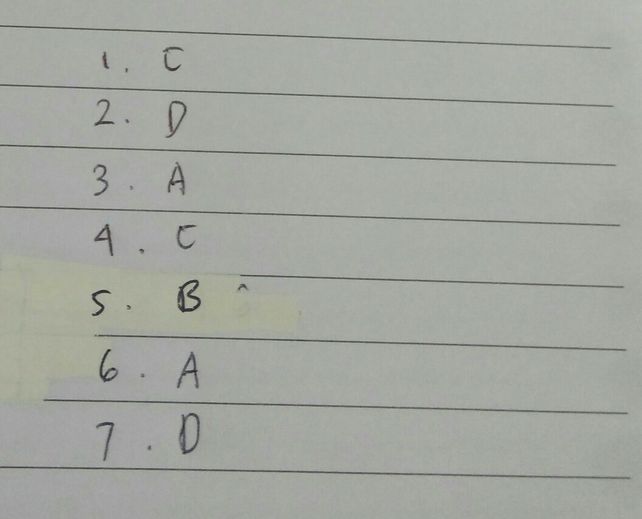 1. C
2. D
3. A
4. C
5. B
6. A
7. D